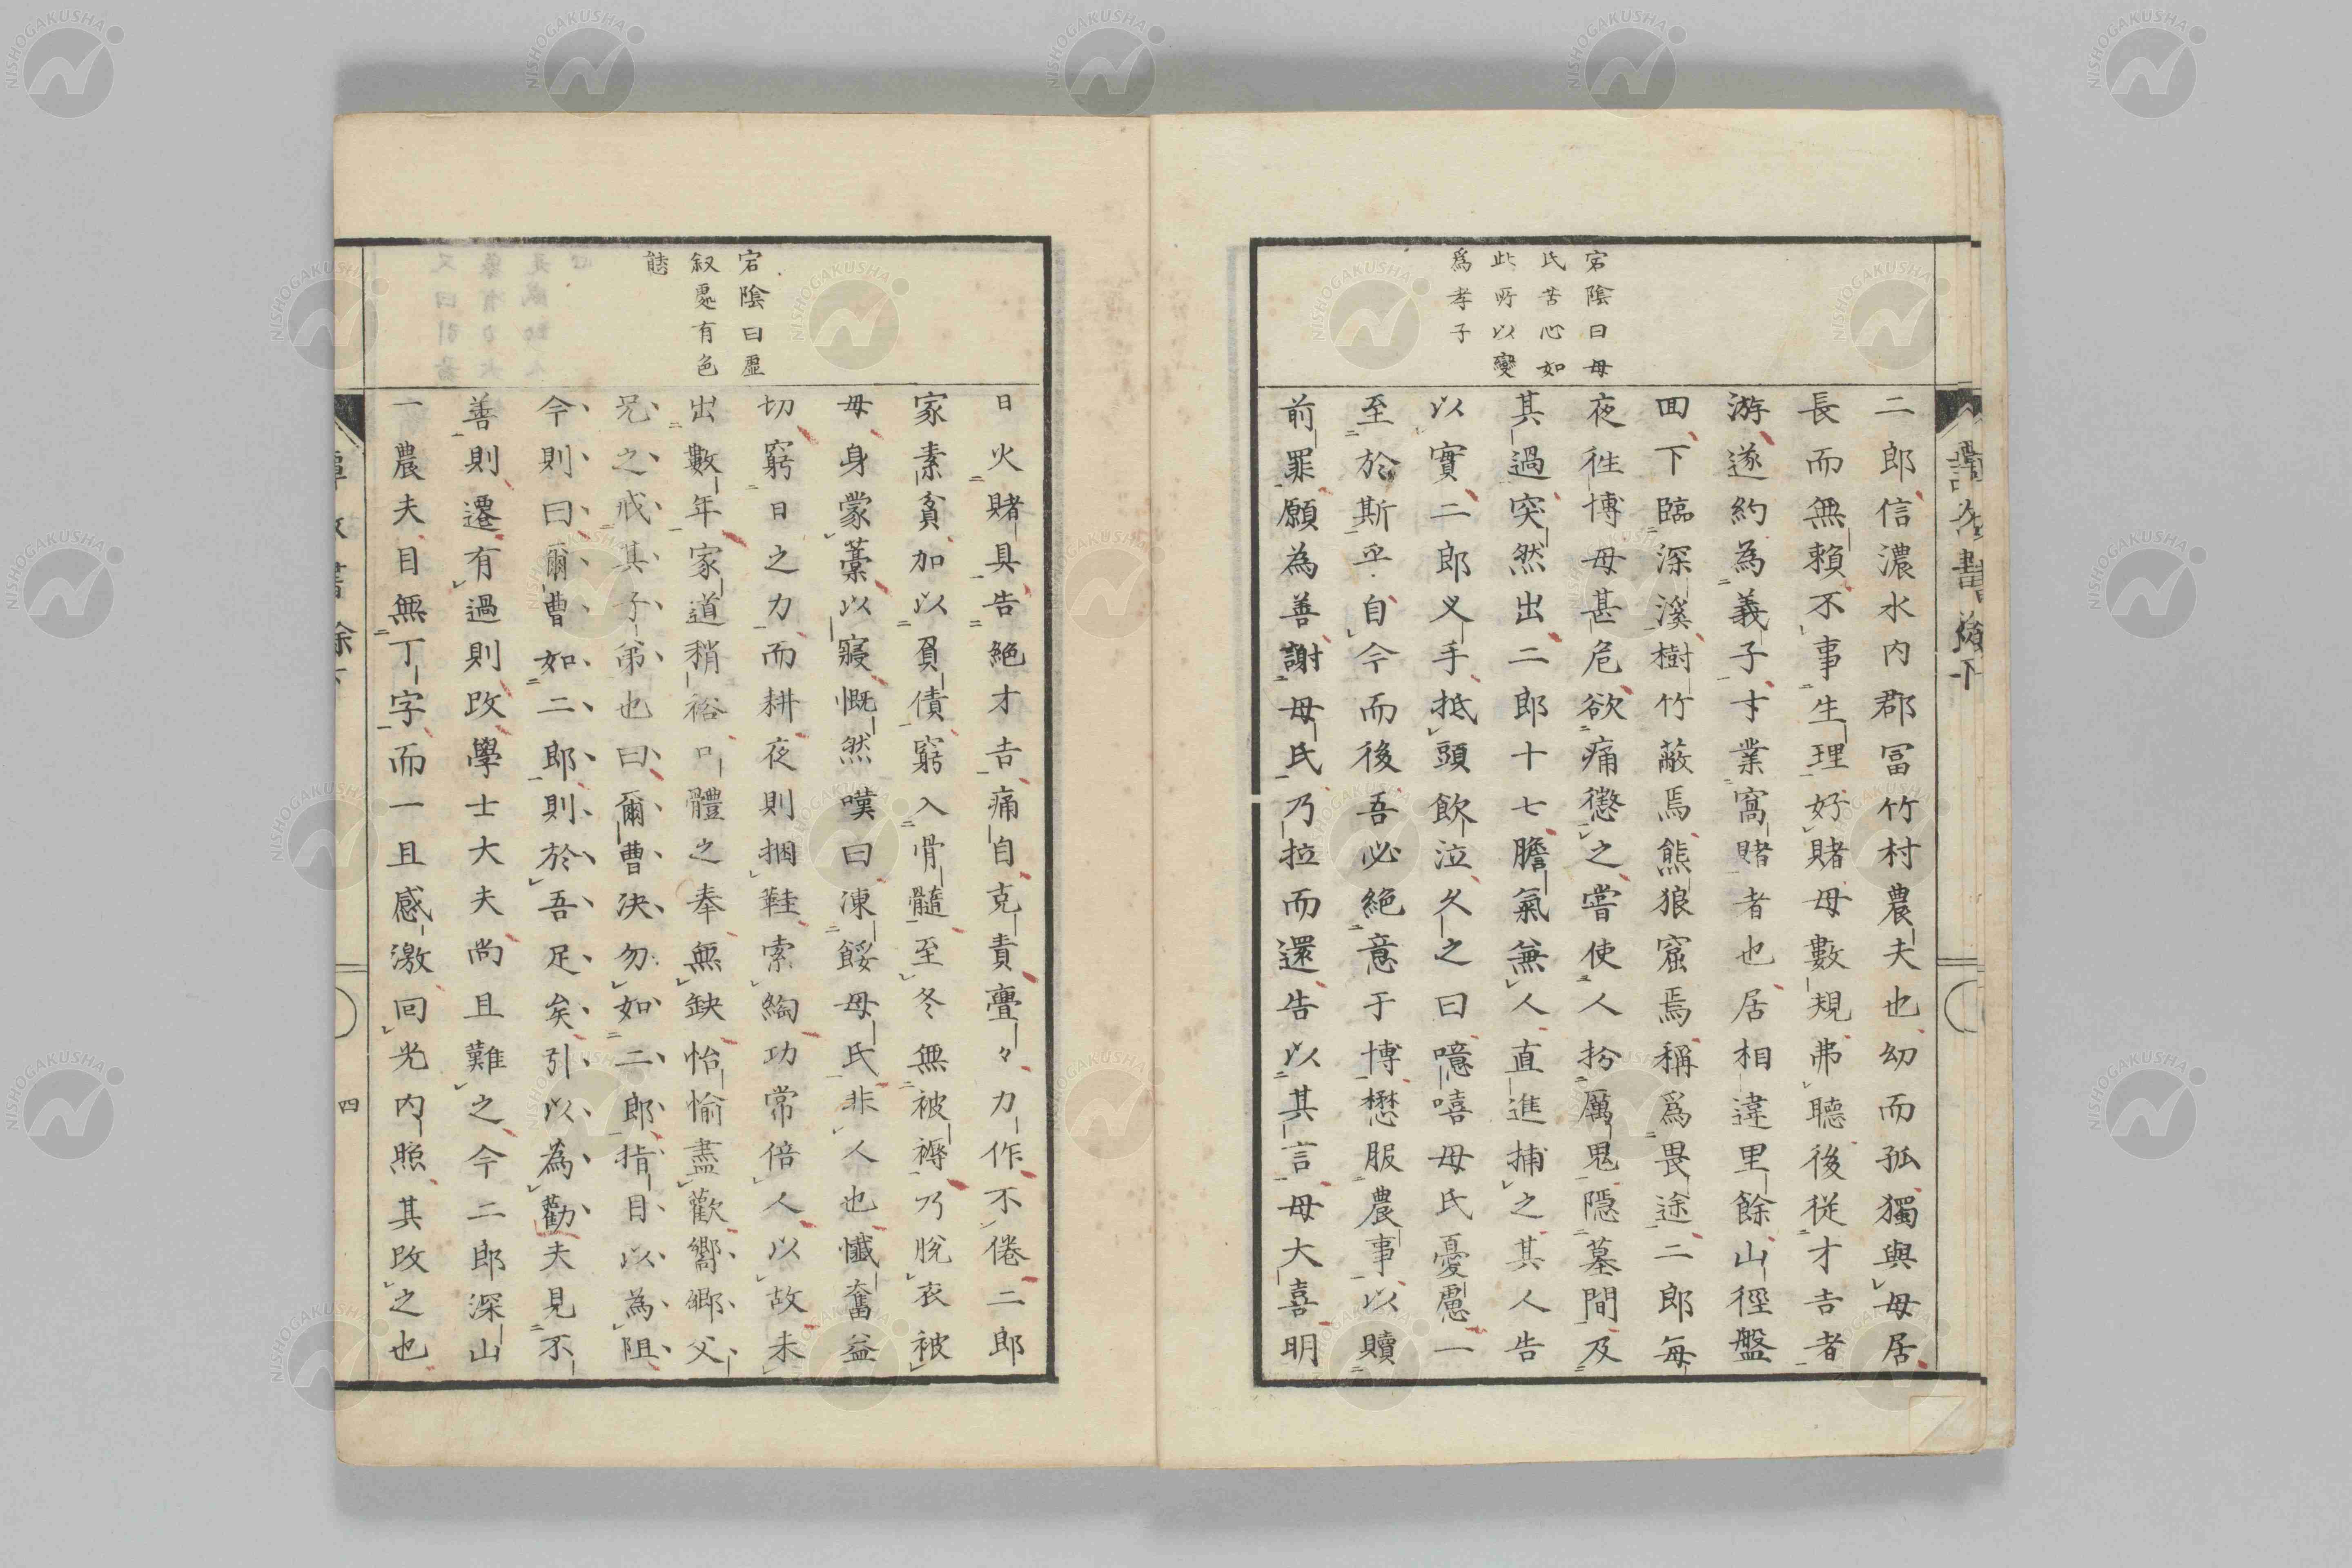 宕陰曰母
氏苦心如
此所以變
爲孝子
二郎信濃水内郡冨竹村農夫也幼而孤獨與母居
長而無賴不事生理好賭母數規弗聽後從才吉者
游遂約為義子才業窩賭者也居相違里餘山徑盤
回下臨深溪樹竹蔽焉熊狼窟焉稱爲畏途二郎每
夜徃博母甚危欲痛懲之嘗使人扮厲鬼隱墓間及
其過突然出二郎十七膽氣兼人直進捕之其人告
以實二郎叉手抵頭飲泣久之曰噫嘻母氏憂慮一
至於斯乎自今而後吾必絕意于博懋服農事以贖
前罪願為善謝母氏乃拉而還告以其言母大喜明
宕陰曰虛
叙處有色
態
日火賭具告絕才吉痛自克責亹々力作不倦二郎
家素貧加以負債窮入骨髓至冬無被褥乃脫衣被
母身蒙藁以寢慨然嘆曰凍餒母氏非人也懺奮益
切窮日之力而耕夜則捆鞋索綯功常倍人以故未
出數年家道稍裕口體之奉無缺怡愉盡歡嚮鄉父
兄之戒其子弟也曰爾曹決勿如二郎指目以為阻
今則曰爾曹如二郎則於吾足矣引以為勸夫見不
善則遷有過則改學士大夫尚且難之今二郎深山
一農夫目無丁字而一旦感激回光内照其改之也
四